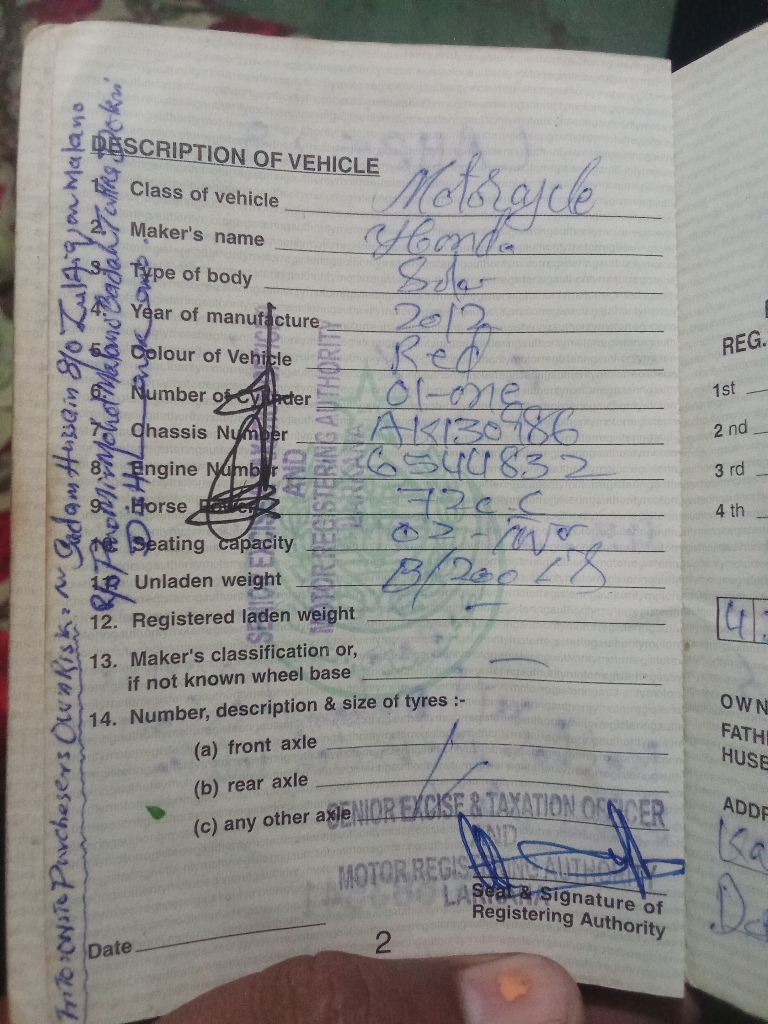 DESCRIPTION OF VEHICLE
1. Class of vehicle Motorcycle
2. Maker's name Honda
3. Type of body Solo
4. Year of manufacture 2012
5. Colour of Vehicle Red
6. Number of Cylinder 01-one
7. Chassis Number AK130986
8. Engine Number 6544832
9. Horse Power 72 c.c
Seating capacity 02-Two
11. Unladen weight B/200
12. Registered laden weight —
13. Maker's classification or,
if not known wheel base —
14. Number, description & size of tyres :-
(a) front axle
(b) rear axle
(c) any other axle
SENIOR EXCISE & TAXATION OFFICER
AND
MOTOR REGISTERING AUTHORITY
LARKANA
Seal & Signature of
Registering Authority
Date
2
SENIOR EXCISE
AND
MOTOR REGISTERING AUTHORITY
LARKANA
Purchasers Own Risk
Hussain S/o
REG.
1st
2 nd
3 rd
4 th
4
OWN
FATH
HUSE
ADDR
Ka